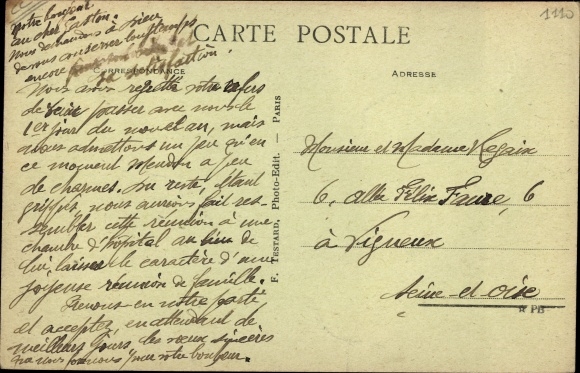 CARTE POSTALE
1110
CORRESPONDANCE
ADRESSE
Nous avons regretté votre refus
de venir passer avec nous le
1er jour du nouvel an, mais
nous admettons un peu qu'en
ce moment Meudon a peu
de charmes. Du reste, étant
grippés, nous aurions fait res-
sembler cette réunion à une
chambre d'hôpital au lieu de
lui laisser le caractère d'une
joyeuse réunion de famille.
Prenons-en notre parti,
et acceptez, en attendant de
meilleurs jours, les vœux sincères
que nous pour votre bonheur.
Notre bonheur
au cher Gaston.
Nous demandons à Dieu
de vous conserver longtemps
encore
sa satisfaction!
F. TESTARD, Photo-Edit. - PARIS
Monsieur et Madame
6, allée Félix Faure, 6
à Vigneux
Seine et Oise